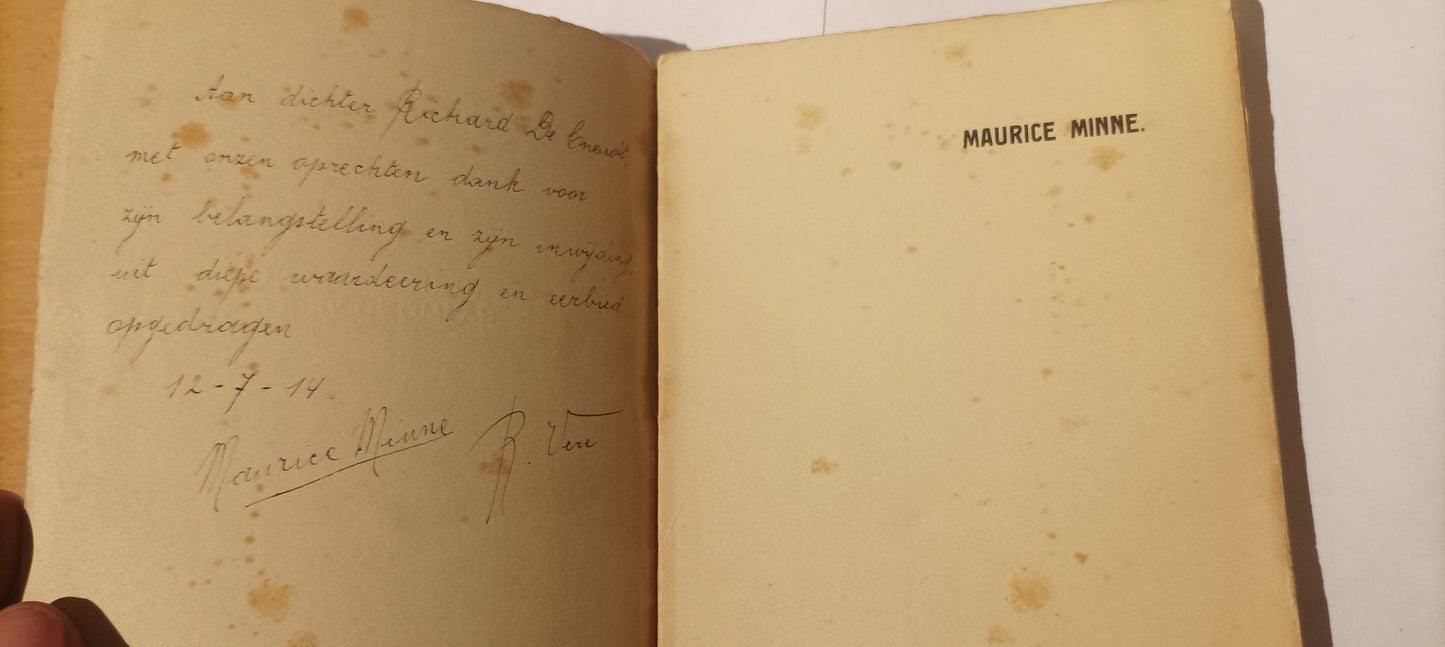 Aan dichter Richard De Cneudt,
met onzen oprechten dank voor
zijn belangstelling en zijn inwijding,
uit diepe waardeering en eerbied
opgedragen
12-7-14.
Maurice Minne R. Vere
MAURICE MINNE.